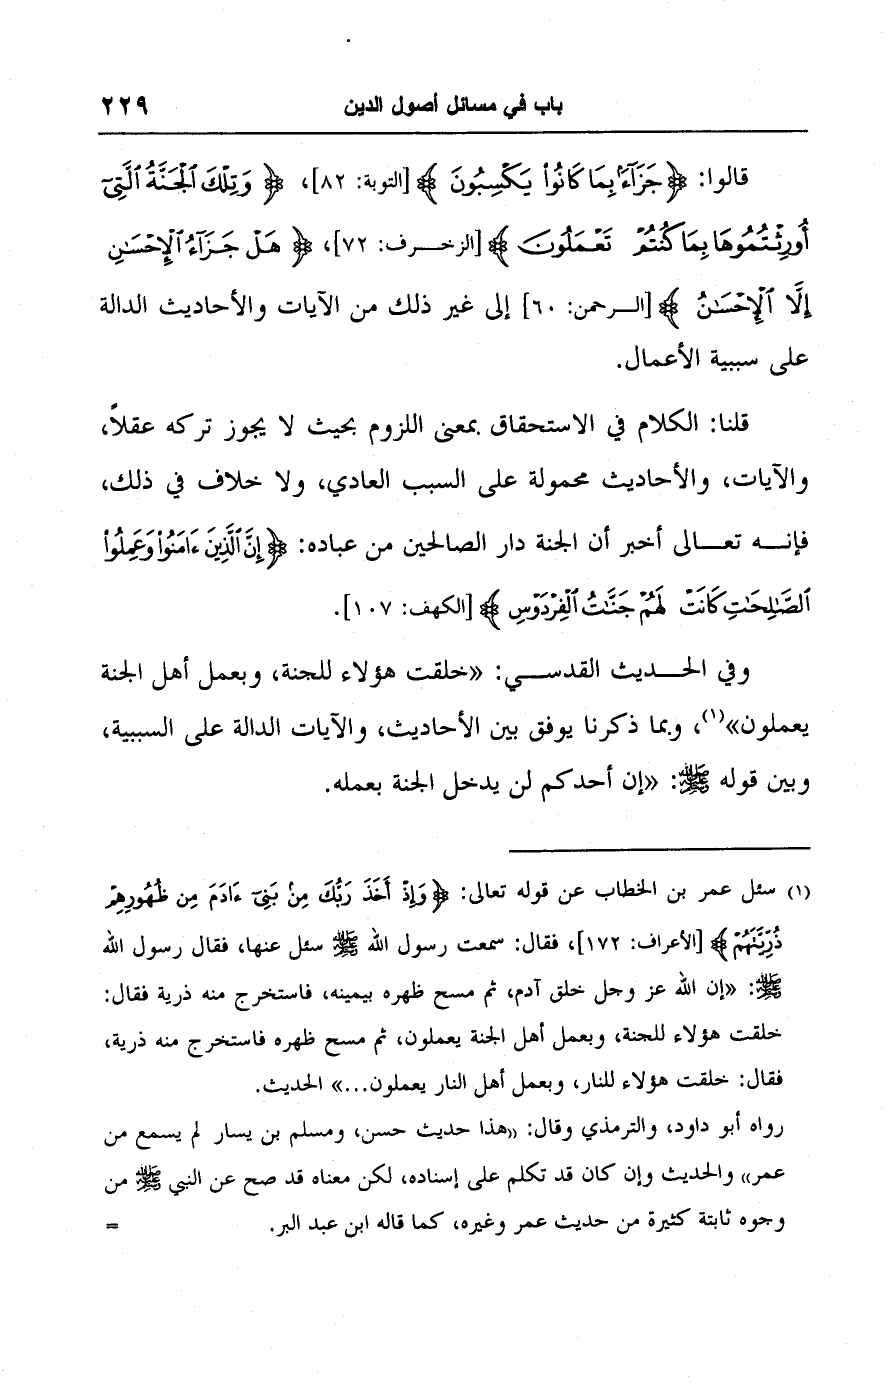 باب في مسائل أصول الدين ٢٢٩
قالوا: ﴿جَزَآءَۢ بِمَا كَانُوا۟ يَكْسِبُونَ﴾ [التوبة: ٨٢]، ﴿وَتِلْكَ ٱلْجَنَّةُ ٱلَّتِىٓ
أُورِثْتُمُوهَا بِمَا كُنتُمْ تَعْمَلُونَ﴾ [الزخرف: ٧٢]، ﴿هَلْ جَزَآءُ ٱلْإِحْسَـٰنِ
إِلَّا ٱلْإِحْسَـٰنُ﴾ [الرحمن: ٦٠] إلى غير ذلك من الآيات والأحاديث الدالة
على سببية الأعمال.
قلنا: الكلام في الاستحقاق بمعنى اللزوم بحيث لا يجوز تركه عقلاً،
والآيات، والأحاديث محمولة على السبب العادي، ولا خلاف في ذلك،
فإنه تعالى أخبر أن الجنة دار الصالحين من عباده: ﴿إِنَّ ٱلَّذِينَ ءَامَنُوا۟ وَعَمِلُوا۟
ٱلصَّـٰلِحَـٰتِ كَانَتْ لَهُمْ جَنَّـٰتُ ٱلْفِرْدَوْسِ﴾ [الكهف: ١٠٧].
وفي الحديث القدسي: «خلقت هؤلاء للجنة، وبعمل أهل الجنة
يعملون»(١)، وبما ذكرنا يوفق بين الأحاديث، والآيات الدالة على السببية،
وبين قوله ﷺ: «إن أحدكم لن يدخل الجنة بعمله.
(١) سئل عمر بن الخطاب عن قوله تعالى: ﴿وَإِذْ أَخَذَ رَبُّكَ مِنۢ بَنِىٓ ءَادَمَ مِن ظُهُورِهِمْ
ذُرِّيَّتَهُمْ﴾ [الأعراف: ١٧٢]، فقال: سمعت رسول الله ﷺ سئل عنها، فقال رسول الله
ﷺ: «إن الله عز وجل خلق آدم، ثم مسح ظهره بيمينه، فاستخرج منه ذرية فقال:
خلقت هؤلاء للجنة، وبعمل أهل الجنة يعملون، ثم مسح ظهره فاستخرج منه ذرية،
فقال: خلقت هؤلاء للنار، وبعمل أهل النار يعملون...» الحديث.
رواه أبو داود، والترمذي وقال: «هذا حديث حسن، ومسلم بن يسار لم يسمع من
عمر» والحديث وإن كان قد تكلم على إسناده، لكن معناه قد صح عن النبي ﷺ من
وجوه ثابتة كثيرة من حديث عمر وغيره، كما قاله ابن عبد البر. =